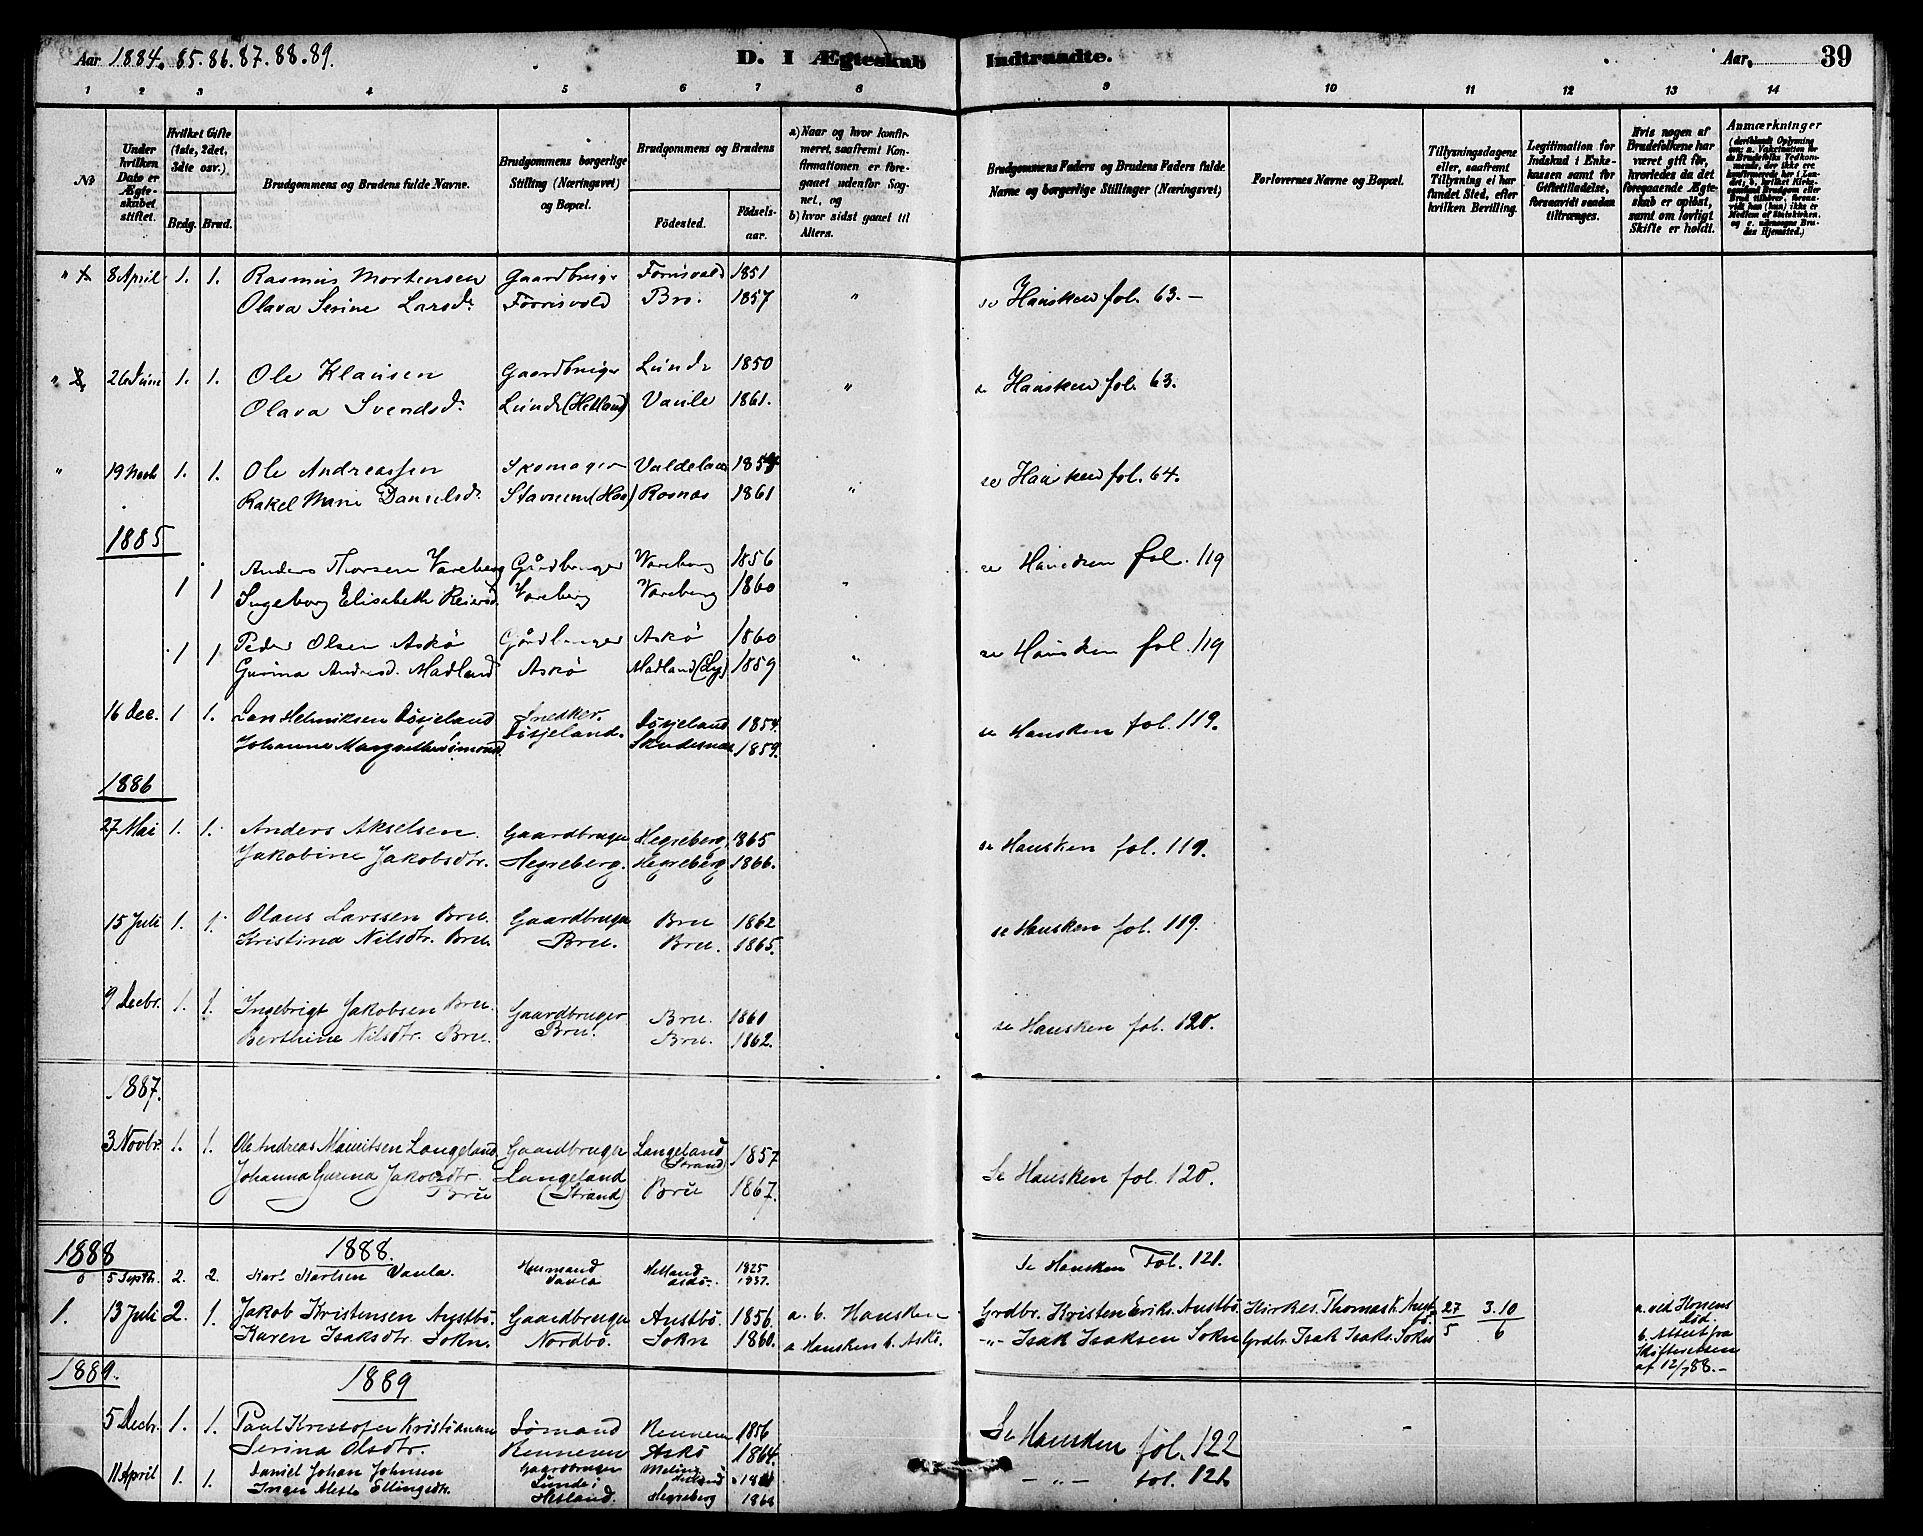 Aar 1884. 85. 86. 87. 88. 89.
D. I Ægteskab Indtraadte.
Aar 39
1 2 3 4 5 6 7 8 9 10 11 12 13 14
No
Under hvilken Dato er Ægteskabet stiftet.
Hvilket Gifte (1ste, 2det, 3die osv.).
Brdg. Brud.
Brudgommens og Brudens fulde Navne.
Brudgommens borgerlige Stilling (Næringsvei) og Bopæl.
Brudgommens og Brudens
Födested.
Födselsaar.
a) Naar og hvor konfirmeret, saafremt Konfirmationen er foregaaet udenfor Sognet, og
b) hvor sidst gaaet til Alters.
Brudgommens Faders og Brudens Faders fulde Navne og borgerlige Stillinger (Næringsvei)
Forlovernes Navne og Bopæl.
Tillysningsdagene eller, saafremt Tillysning ei har fundet Sted, efter hvilken Bevilling.
Legitimation for Indskud i Enkekassen samt for Giftetilladelse, forsaavidt saadan tiltrænges.
Hvis nogen af Brudefolkene har været gift för, hvorledes da det foregaaende Ægteskab er oplöst, samt om lovligt Skifte er holdt.
Anmærkninger
8 April 1. 1. Rasmus Mortensen Gaardbruger Förrisvold 1851
Olava Serine Larsd. Förrisvold Bro. 1857 " se Hausken fol. 63. —
26 Juni 1. 1. Ole Klausen Gaardbruger Lunde 1850
Olava Svendsd. Lunde (Hetland) Vaule 1861. " se Hausken fol. 63.
" 19 Novb 1. 1. Ole Andreassen Skomager
Rakel Marie Danielsd. Rosnæs 1861 " se Hausken fol. 64.
1885
Anders Thorsen Vareberg Gårdbruger Vareberg 1856
1 1 Ingeborg Elisabeth Reiersd. Vareberg Vareberg 1860 " se Hausken fol. 119
Peder Olsen Askö Gårdbruger Askö 1860
1 1 Gurina Andersd. Madland Askö Madland 1859 " se Hausken fol. 119
16 Dec. 1 1. Lars Helmiksen Dösjeland Snedker. Dösjeland 1854.
Johanne Margrethe Simonsd. Dösjeland. Skudesnæs 1859. se Hausken fol. 119.
1886
27 Mai 1. 1. Anders Akselsen. Gaardbruger Hegreberg 1865
Jakobine Jakobsdtr. Hegreberg. Hegreberg 1866. se Hausken fol. 119.
15 Juli 1. 1. Olaus Larssen Bru. Gaardbruger Bru 1862
Kristina Nilsdtr. Bru. Bru. Bru. 1865. se Hausken fol. 119.
9 Decbr. 1. 1. Ingebrigt Jakobsen Bru. Gaardbruger Bru. 1860
Berthine Nilsdtr. Bru. Bru. Bru. 1862. se Hausken fol. 120.
1887.
3 Novbr. 1. 1. Ole Andreas Mauritsen Langeland Gaardbruger Langeland (Strand) 1857
Johanna Gurina Jakobsdtr. Bru Langeland (Strand) Bru 1867. Se Hausken fol. 120.
1888 1888.
5 Septbr. 2. 2. Karl Karlsen Vaula. Husmand Vaula Helland 1825 1837. Se Hausken Fol. 121.
1. 13 Juli 2. 1. Jakob Kristensen Austbö. Gaardbruger Austbö. 1856. a. b. Hausken Grdbr. Kristen Eriks. Austbö. Kirkes. Thomas K. Austb. 27/5 3.10/6 a. ved Konens Död.
Karen Isaksdtr. Sokn. Nordbö. Sokn 1860. a Hausken b. Askö. -"- Isak Isaksen Sokn Grdbr. Isak Isaks. Sokn b. Attest fra Skifteretten af 12/7 88. —
1889. 1889
5 Decbr. 1. 1. Paul Kristofer Kristiansen Sömand Rennesø 1856
Serina Olsdtr. Rennesø Askö 1864. Se Hausken fol. 122
11 April 1. 1. Daniel Johan Johnsen Gaardbruger
Inger Mette Ellingsdtr. Lunde i Hetland. Hegreberg — " — fol. 121.